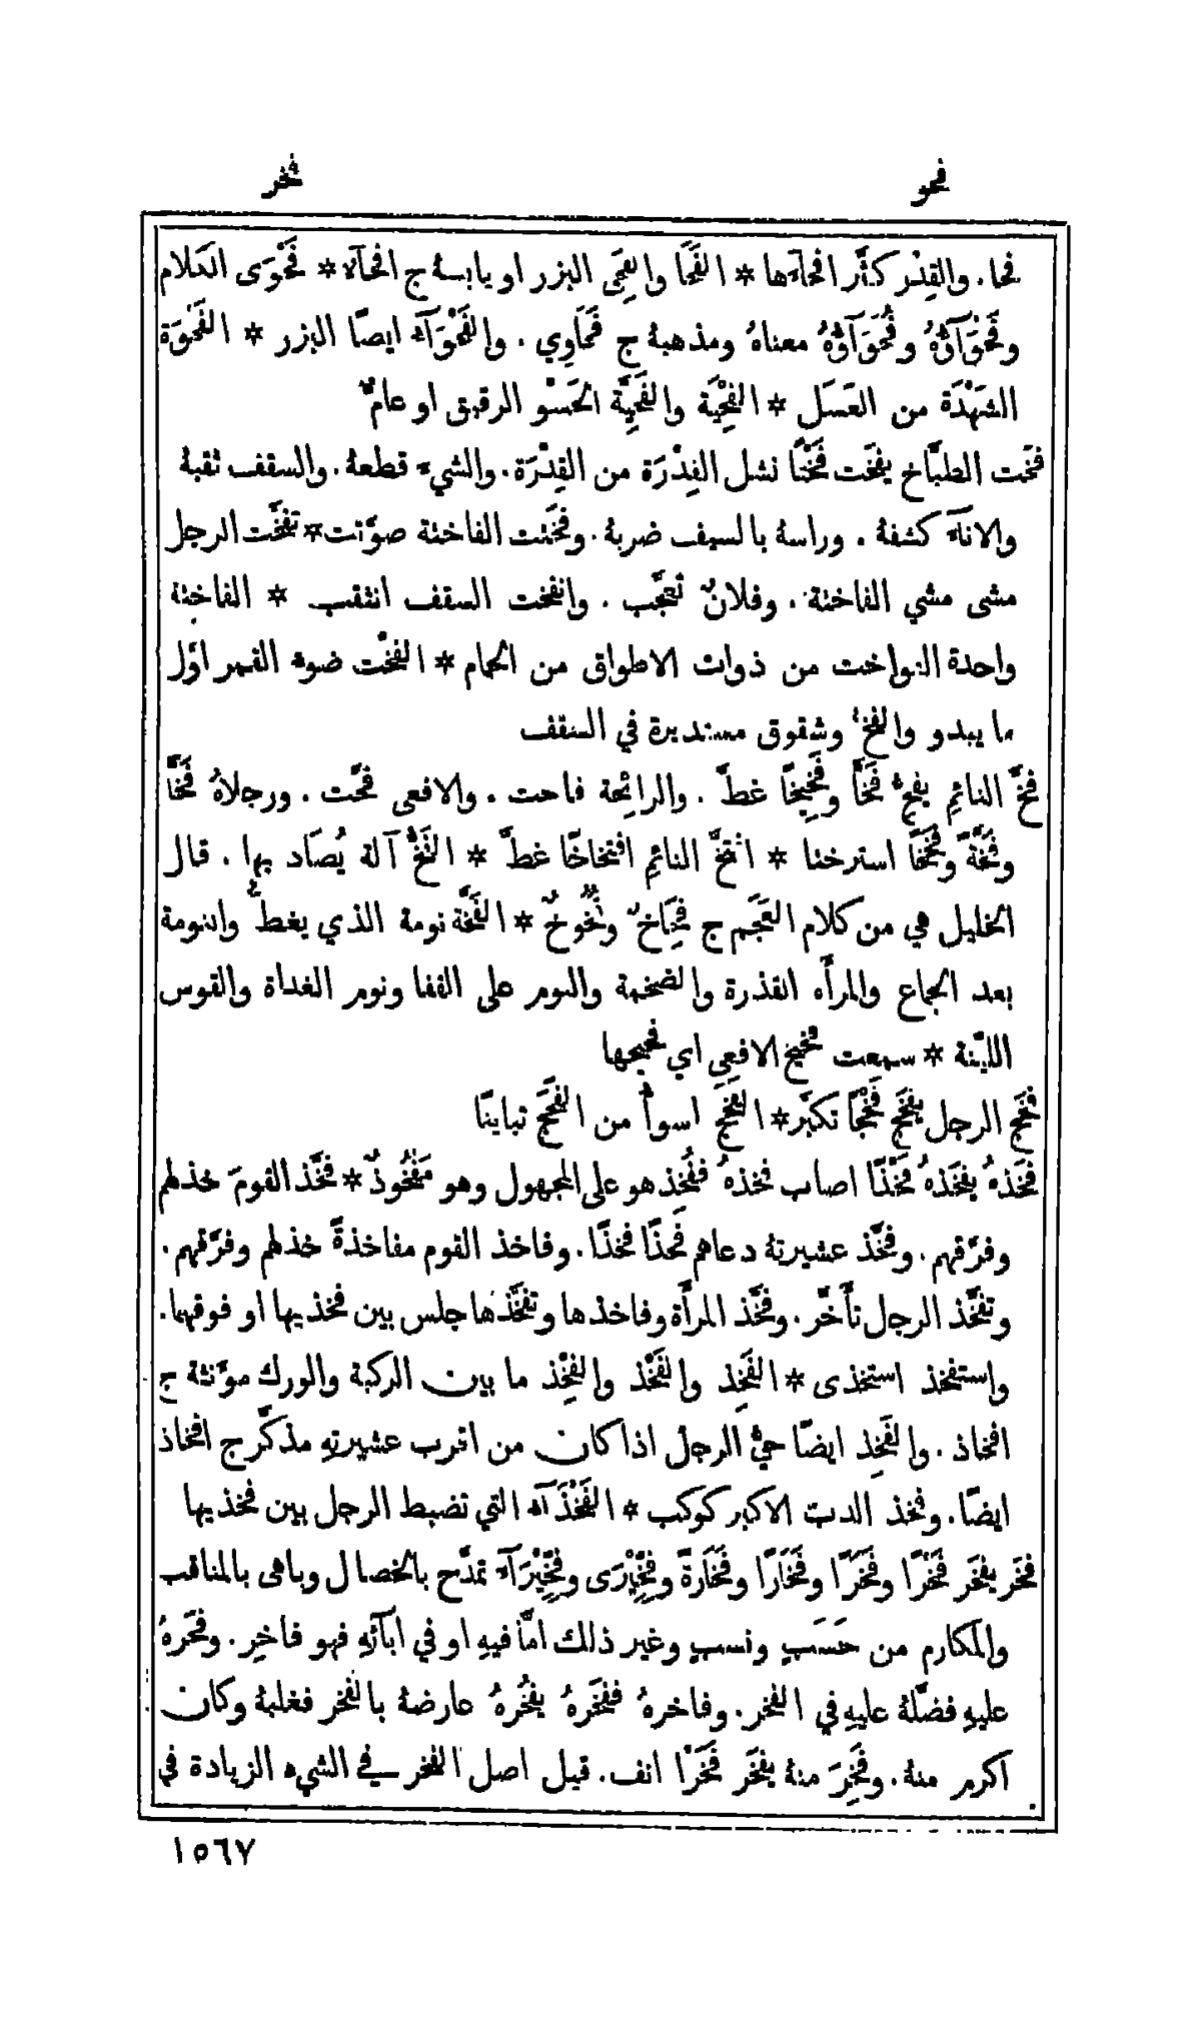 فحو
فخر
فحا. والقِدْر كثَّر افحآءَها * الفَحَا والفِحَى البزر او يابسهُ ج افحآء * فَحْوَى الكلام
وفَحْوَآؤُهُ وفُحَوَآؤُهُ معناهُ ومذهبهُ ج فَحَاوِي. والفَحْوَآء ايضًا البزر * الفَحْوَة
الشَهْدَة من العَسَل * الفِحْيَة والفَحِيَّة الحَسْو الرقيق او عامٌّ
فخَت الطبَّاخ يفخَت فَخْتًا نشل الفِدْرَة من القِدْرَة. والشيءَ قطعهُ. والسقف ثقبهُ
والانآءَ كشفهُ. وراسهُ بالسيف ضربهُ. وفخَتت الفاختة صوَّتت * تفخَّت الرجل
مشى مشي الفاختة. وفلانٌ تعجَّب. وانفخت السقف انثقب * الفاخِتة
واحدة الفواخت من ذوات الاطواق من الحمام * الفَخْت ضوء القمر اوَّل
ما يبدو والفخّ وشقوق مستديرة في السقف
فخَّ النائِم يفخُّ فَخًّا وفَخِيخًا غطَّ. والرائِحة فاحت. والافعى فحَّت. ورجلاهُ فَخًّا
وفَخَّةً وفَخَخًا استرختا * افتخَّ النائِم افتخاخًا غطَّ * الفَخُّ آلة يُصَاد بها. قال
الخليل هي من كلام العَجَم ج فِخَاخٌ وفُخُوخٌ * الفَخَّة نومة الذي يغطُّ والنومة
بعد الجماع والمرأَة القذرة والضخمة والنوم على القفا ونوم الغداة والقوس
الليّنة * سمعت فخيخ الافعى اي فحيحها
فخَج الرجل يفخَج فَخْجًا تكبَّر * الفَخَج اسوأُ من الفَحَج تباينًا
فخَذهُ يفخَذهُ فَخْذًا اصاب فخذهُ ففُخِذ هو على المجهول وهو مَفْخُوذٌ * فخَّذ القومَ خذلهم
وفرَّقهم. وفخَّذ عشيرتهُ دعاهم فَخذًا فخذًا. وفاخذ القوم مفاخذةً خذلهم وفرَّقهم.
وتفخَّذ الرجل تأَخَّر. وفخَّذ المرأَة وفاخذها وتفخَّذها جلس بين فخذيها او فوقهما.
واستفخذ استخذى * الفَخِذ والفَخْذ والفِخْذ ما بين الركبة والورك مؤَنثة ج
افخاذ. والفَخِذ ايضًا حيُّ الرجل اذا كان من اقرب عشيرتهِ مذكَّر ج افخاذ
ايضًا. وفخذ الدبّ الاكبر كوكب * الفَخْذَآء التي تضبط الرجل بين فخذيها
فخَر يفخَر فَخْرًا وفَخَرًا وفَخَارًا وفَخَارةً وفِخِّيْرَى وفِخِّيْرَآء تمدَّح بالخصال وباهى بالمناقب
والمكارم من حَسَبٍ ونسبٍ وغير ذلك امَّا فيهِ او في ابآئِهِ فهو فاخِر. وفخَرهُ
عليهِ فضَّلهُ عليهِ في الفخر. وفاخرهُ ففخَرهُ يفخُرهُ عارضهُ بالفخر فغلبهُ وكان
اكرم منهُ. وفخِرَ منهُ يفخَر فَخَرًا انف. قيل اصل الفخر في الشيء الزيادة في
١٥٦٧